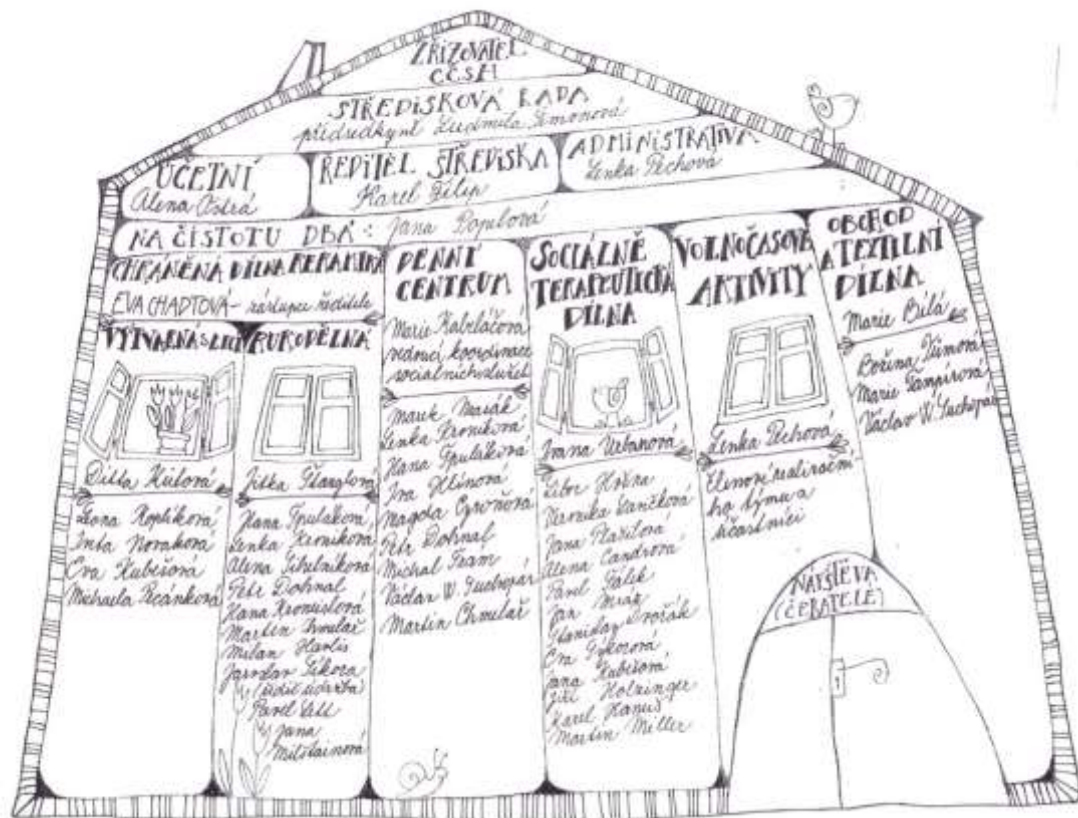 ZŘIZOVATEL
CČSH
STŘEDISKOVÁ RADA
předsedkyně Ludmila Šimonová
ÚČETNÍ
Alena Ostrá
ŘEDITEL STŘEDISKA
Karel Filip
ADMINISTRATIVA
Lenka Pechová
NA ČISTOTU DBÁ: Jana Popelová
CHRÁNĚNÁ DÍLNA KERAMIKA
EVA CHADTOVÁ - zástupce ředitele
VÝTVARNÁ S LICÍ
Ditta Kútová
Leona Koptíková
Iveta Nováková
Eva Kubešová
Michaela
RUKODĚLNÁ
Jitka
Hana Špuláková
Lenka Kroníková
Alena Šihelníková
Petr Dohnal
Hana
Martin Chmelař
Milan Havlis
Jaroslav Sýkora
(údržba)
Pavel
Jana
Milštainová
DENNÍ
CENTRUM
Marie Kabeláčová
vedoucí koordinace
sociálních služeb
Marek Maršák
Lenka Kroníková
Hana Špuláková
Iva Hlínová
Magda
Petr Dohnal
Michal Fram
Václav W. Suchopár
Martin Chmelař
SOCIÁLNĚ
TERAPEUTICKÁ
DÍLNA
Ivana Urbanová
Libor
Veronika Vaníčková
Jana Plažilová
Alena Candrová
Pavel Fálek
Jan Mráz
Stanislav Dvořák
Eva Sýkorová
Jana Kubešová
Jiří Holzinger
Karel Hanuš
Martin Miller
VOLNOČASOVÉ
AKTIVITY
Lenka Pechová
Členové realizační
ho týmu a
účastníci
OBCHOD
A TEXTILNÍ
DÍLNA
Marie Bílá
Božena
Marie Vampírová
Václav W. Suchopár
NÁVŠTĚVA
(ČEKATELÉ)